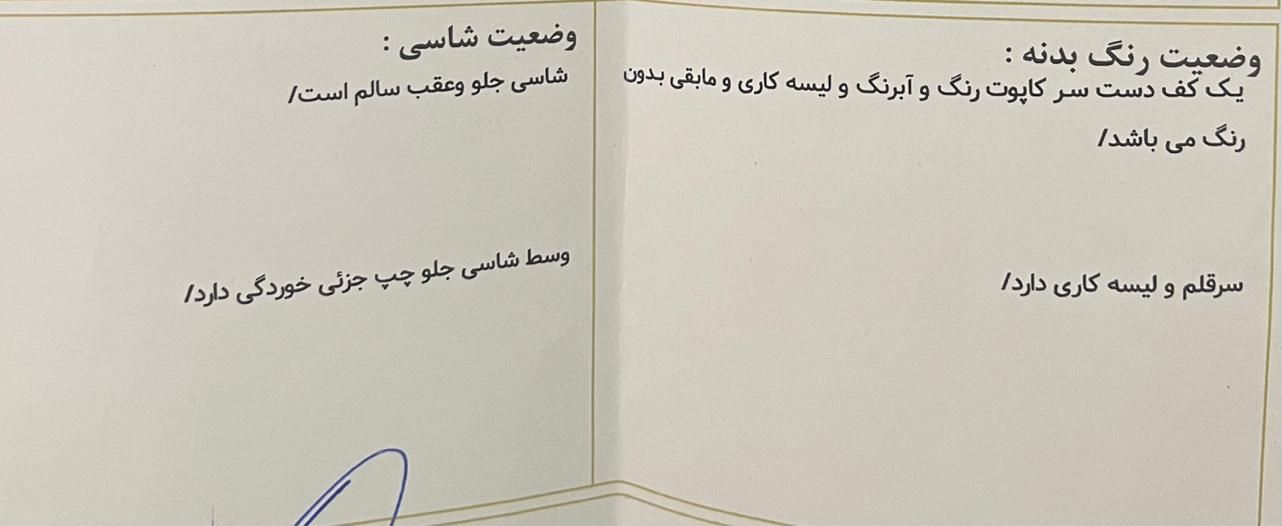 وضعیت رنگ بدنه :
یک کف دست سر کاپوت رنگ و آبرنگ و لیسه کاری و مابقی بدون
رنگ می باشد/
سرقلم و لیسه کاری دارد/
وضعیت شاسی :
شاسی جلو وعقب سالم است/
وسط شاسی جلو چپ جزئی خوردگی دارد/